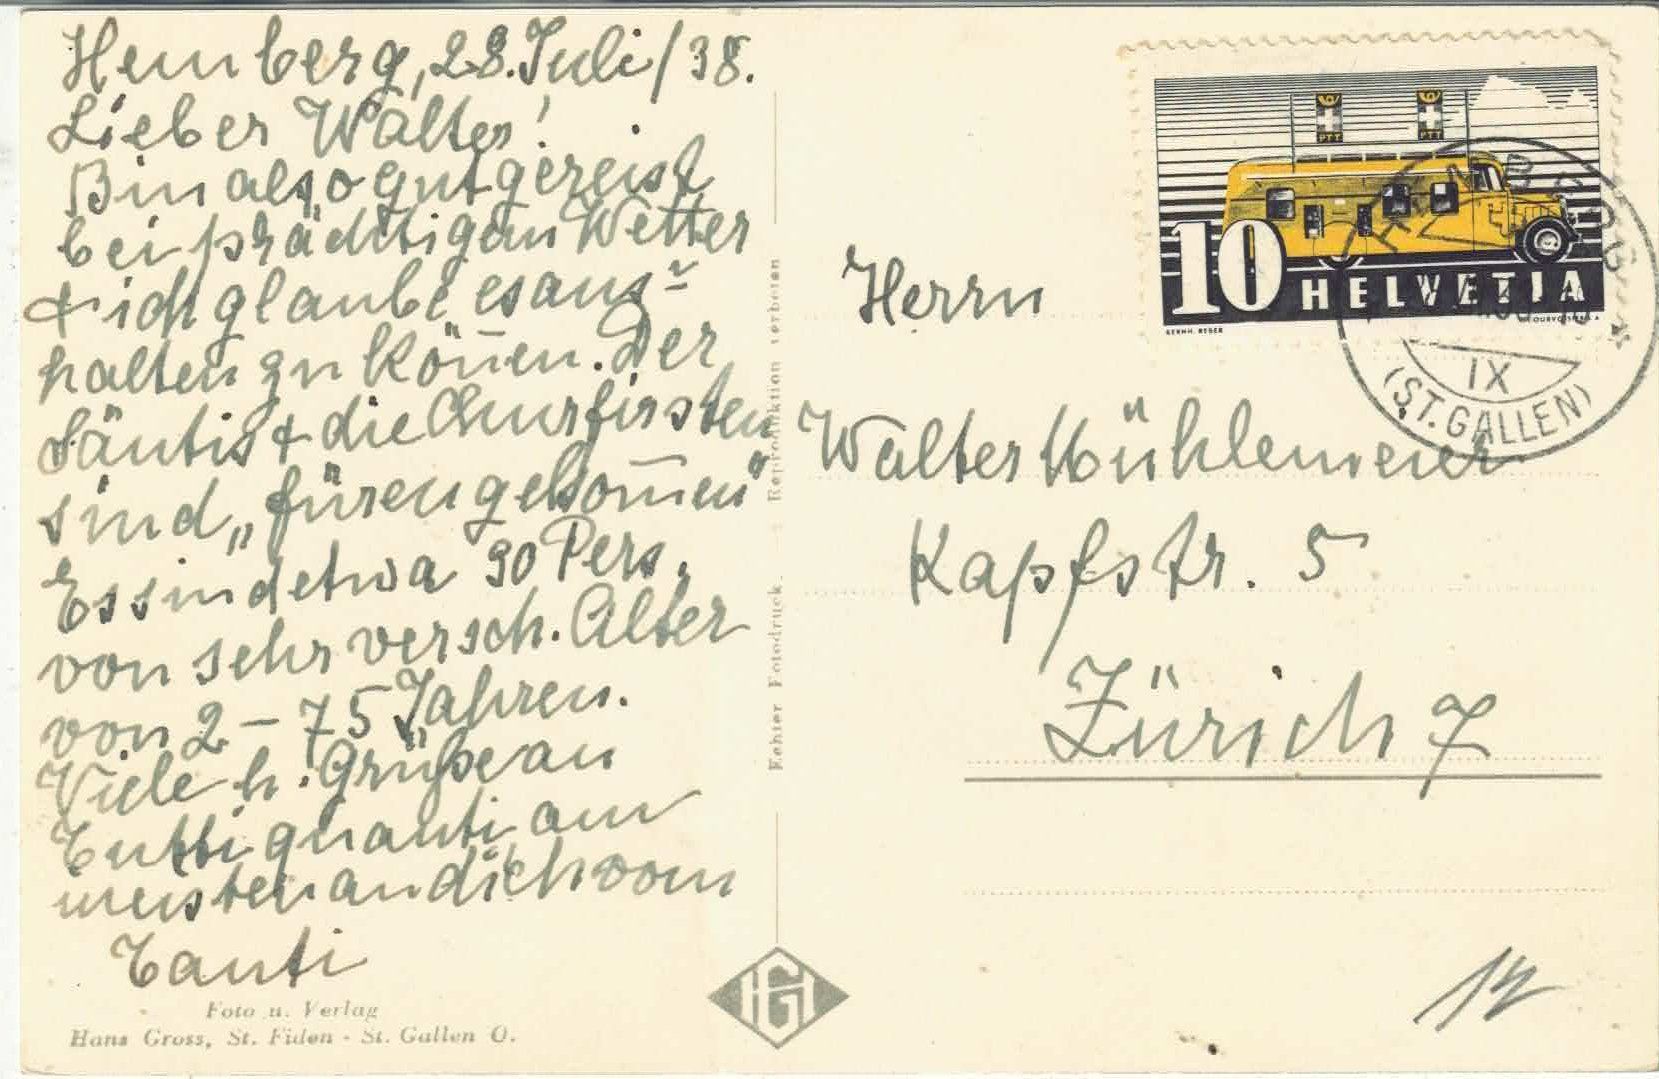 Hemberg, 28. Juli/38.
Lieber Walter!
Bin also gut gereist
bei prächtigem Wetter
& ich glaube es aus-
halten zu können. Der
Säntis & die Churfirsten
sind „füren gekommen“
Es sind etwa 90 Pers.
von sehr versch. Alter
von 2 – 75 Jahren.
Viele h. Grüße an
Tutti quanti am
meisten an dich vom
Tanti
Foto u. Verlag
Hans Gross, St. Fiden - St. Gallen O.
Echter Fotodruck. Reproduktion verboten
HG
PTT
PTT
10 HELVETIA
BERNH. REBER
COURVOISIER S.A.
HEMBERG
IX
(ST. GALLEN)
Herrn
Walter Mühlemeier
Kapfstr. 5
Zürich 7